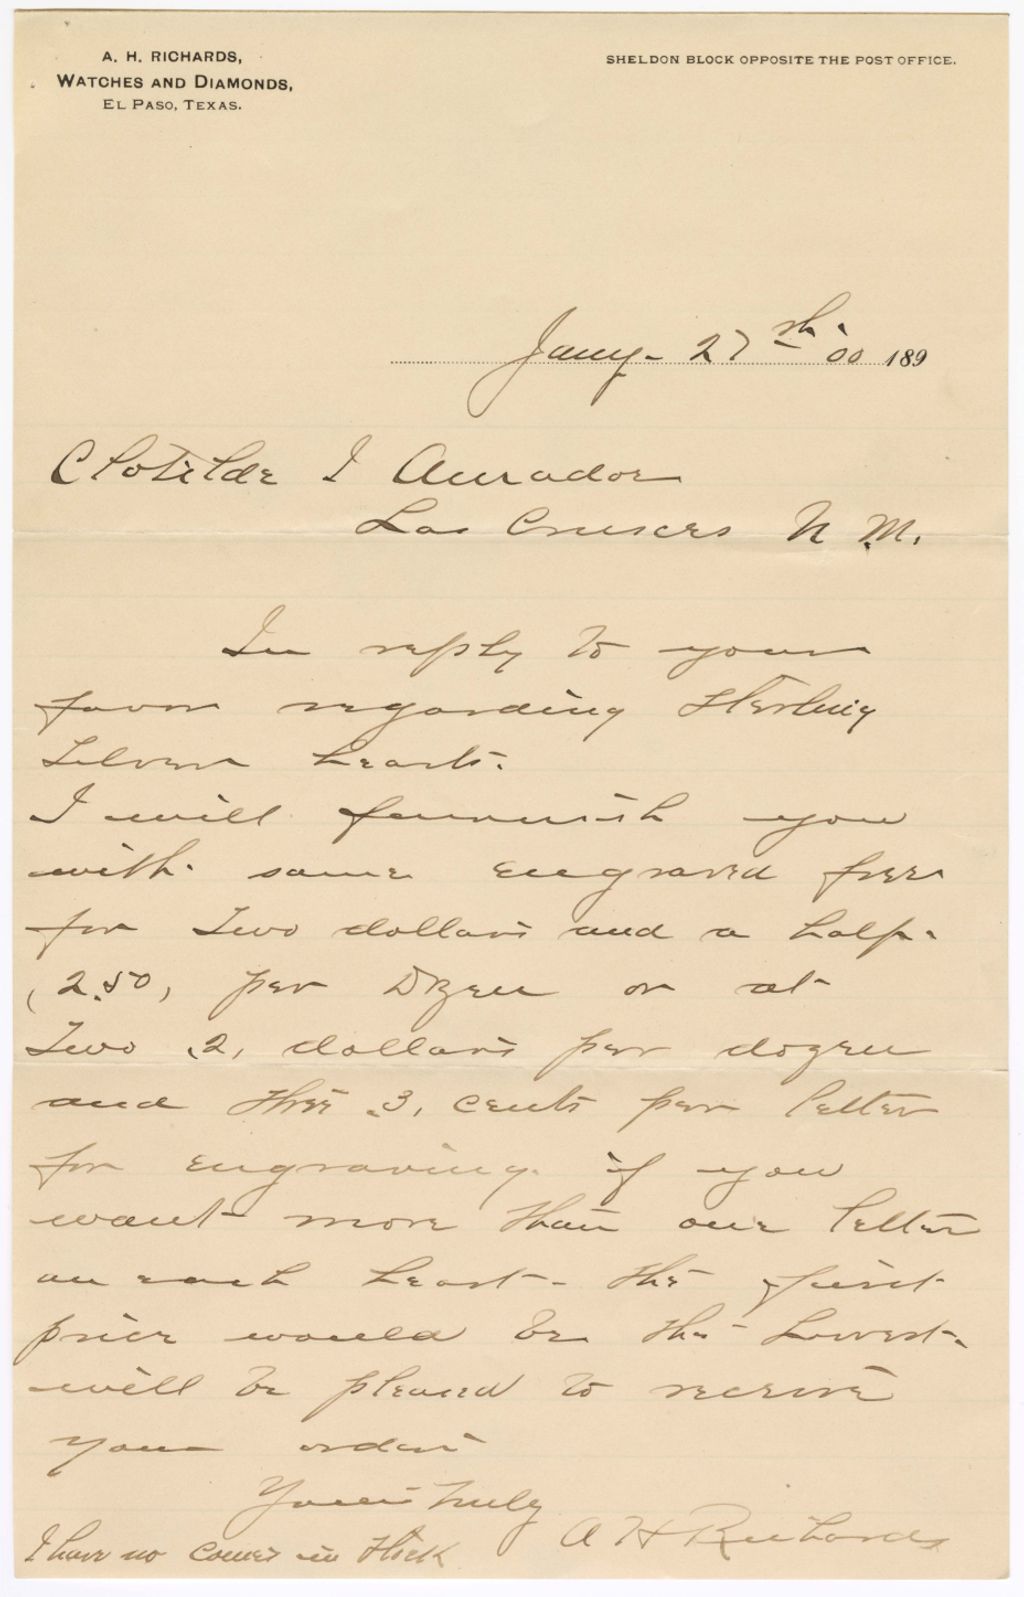 A. H. RICHARDS,
WATCHES AND DIAMONDS,
EL PASO, TEXAS.
SHELDON BLOCK OPPOSITE THE POST OFFICE.
Jany- 27th 00 189
Clotilde I Amador
Las Cruces N. M.
In reply to your
favor regarding Sterling
Silver hearts.
I will furnish you
with same engraved free
for Two dollars and a half.
(2.50) per Dozen or at
Two (2) dollars per dozen
and three (3) cents per letter
for engraving. if you
want more than one letter
on each heart- the first
price would be the Lowest.
will be pleased to receive
your order
Yours truly
A H Richards
I have no in Stock